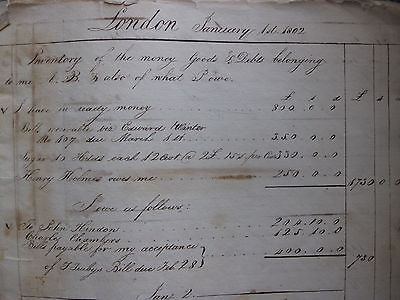 London January 1st. 1802
Inventory of the money Goods & Debts belonging
to me A. B. & also of what I owe.
£ s d £ s
I have in ready money 800.0.0
Bills receivable viz Edward Winter
No 197 due March 1st. 350.0.0
Sugar 10 Hhds each 12 Cwt @ 2£. 15s per Cwt 330.0.0
Henry Holmes owes me 250.0.0
1730 0 0
I owe as follows:
To John Hindon 204.10.0
Charles Chambers 125.10.0
Bills payable for my acceptance
of T. Bill due Feb. 28 400.0.0
730
Jany. 2